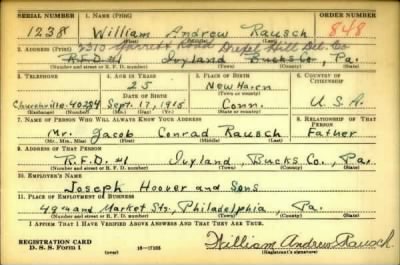 SERIAL NUMBER 1. NAME (Print) ORDER NUMBER
1238 William Andrew Rausch 848
(First) (Middle) (Last)
2. ADDRESS (Print) 2310 Garrett Road Drexel Hill Del. Co
R.F.D. #1 Ivyland Bucks Co., Pa.
(Number and street or R. F. D. number) (Town) (County) (State)
3. TELEPHONE 4. AGE IN YEARS 5. PLACE OF BIRTH 6. COUNTRY OF CITIZENSHIP
25 New Haven
DATE OF BIRTH (Town or county)
Churchville-40254 Sept. 17, 1915 Conn. U.S.A.
(Exchange) (Number) (Mo.) (Day) (Yr.) (State or country)
7. NAME OF PERSON WHO WILL ALWAYS KNOW YOUR ADDRESS 8. RELATIONSHIP OF THAT PERSON
Mr. Jacob Conrad Rausch Father
(Mr., Mrs., Miss) (First) (Middle) (Last)
9. ADDRESS OF THAT PERSON
R.F.D. #1 Ivyland, Bucks Co., Pa.
(Number and street or R. F. D. number) (Town) (County) (State)
10. EMPLOYER'S NAME
Joseph Hoover and Sons
11. PLACE OF EMPLOYMENT OR BUSINESS
49th and Market Sts., Philadelphia, Pa.
(Number and street or R. F. D. number) (Town) (County) (State)
I AFFIRM THAT I HAVE VERIFIED ABOVE ANSWERS AND THAT THEY ARE TRUE.
REGISTRATION CARD
D. S. S. Form 1 (over) 16-17105 William Andrew Rausch
(Registrant's signature)